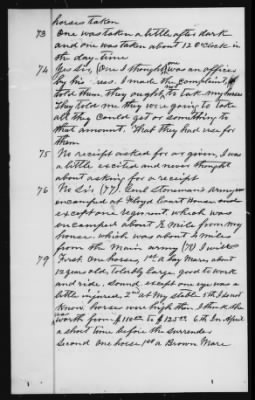 horses taken
73 One was taken a little after dark
and one was taken about 12 O'clock in
the day time
74 Yes Sir, (One I thought) was an officer
by his dress. I made the complaint,
told them they ought not to take my horses
They told me they were going to take
all they could get or something to
that amount. That they had use for
them
75 No receipt asked for or given, I was
a little excited and never thought
about asking for a receipt
76 No Sir (77). Genl Stoneman's Army was
encamped at Floyd Court House and
except one regiment, which was
encamped about ½ mile from my
house, which was about 4 miles
from the Main army (78) I will
79 First. One horse, 1st a bay Mare, about
12 years old, tolerbly large, good to work
and ride, sound except one eye was a
little injured, 2nd at My stable 5th I do not
know horses were high then I think she
was worth from $100.00 to $125.00 6th In April
a short time before the surrender
Second One horse 1st a Brown Mare